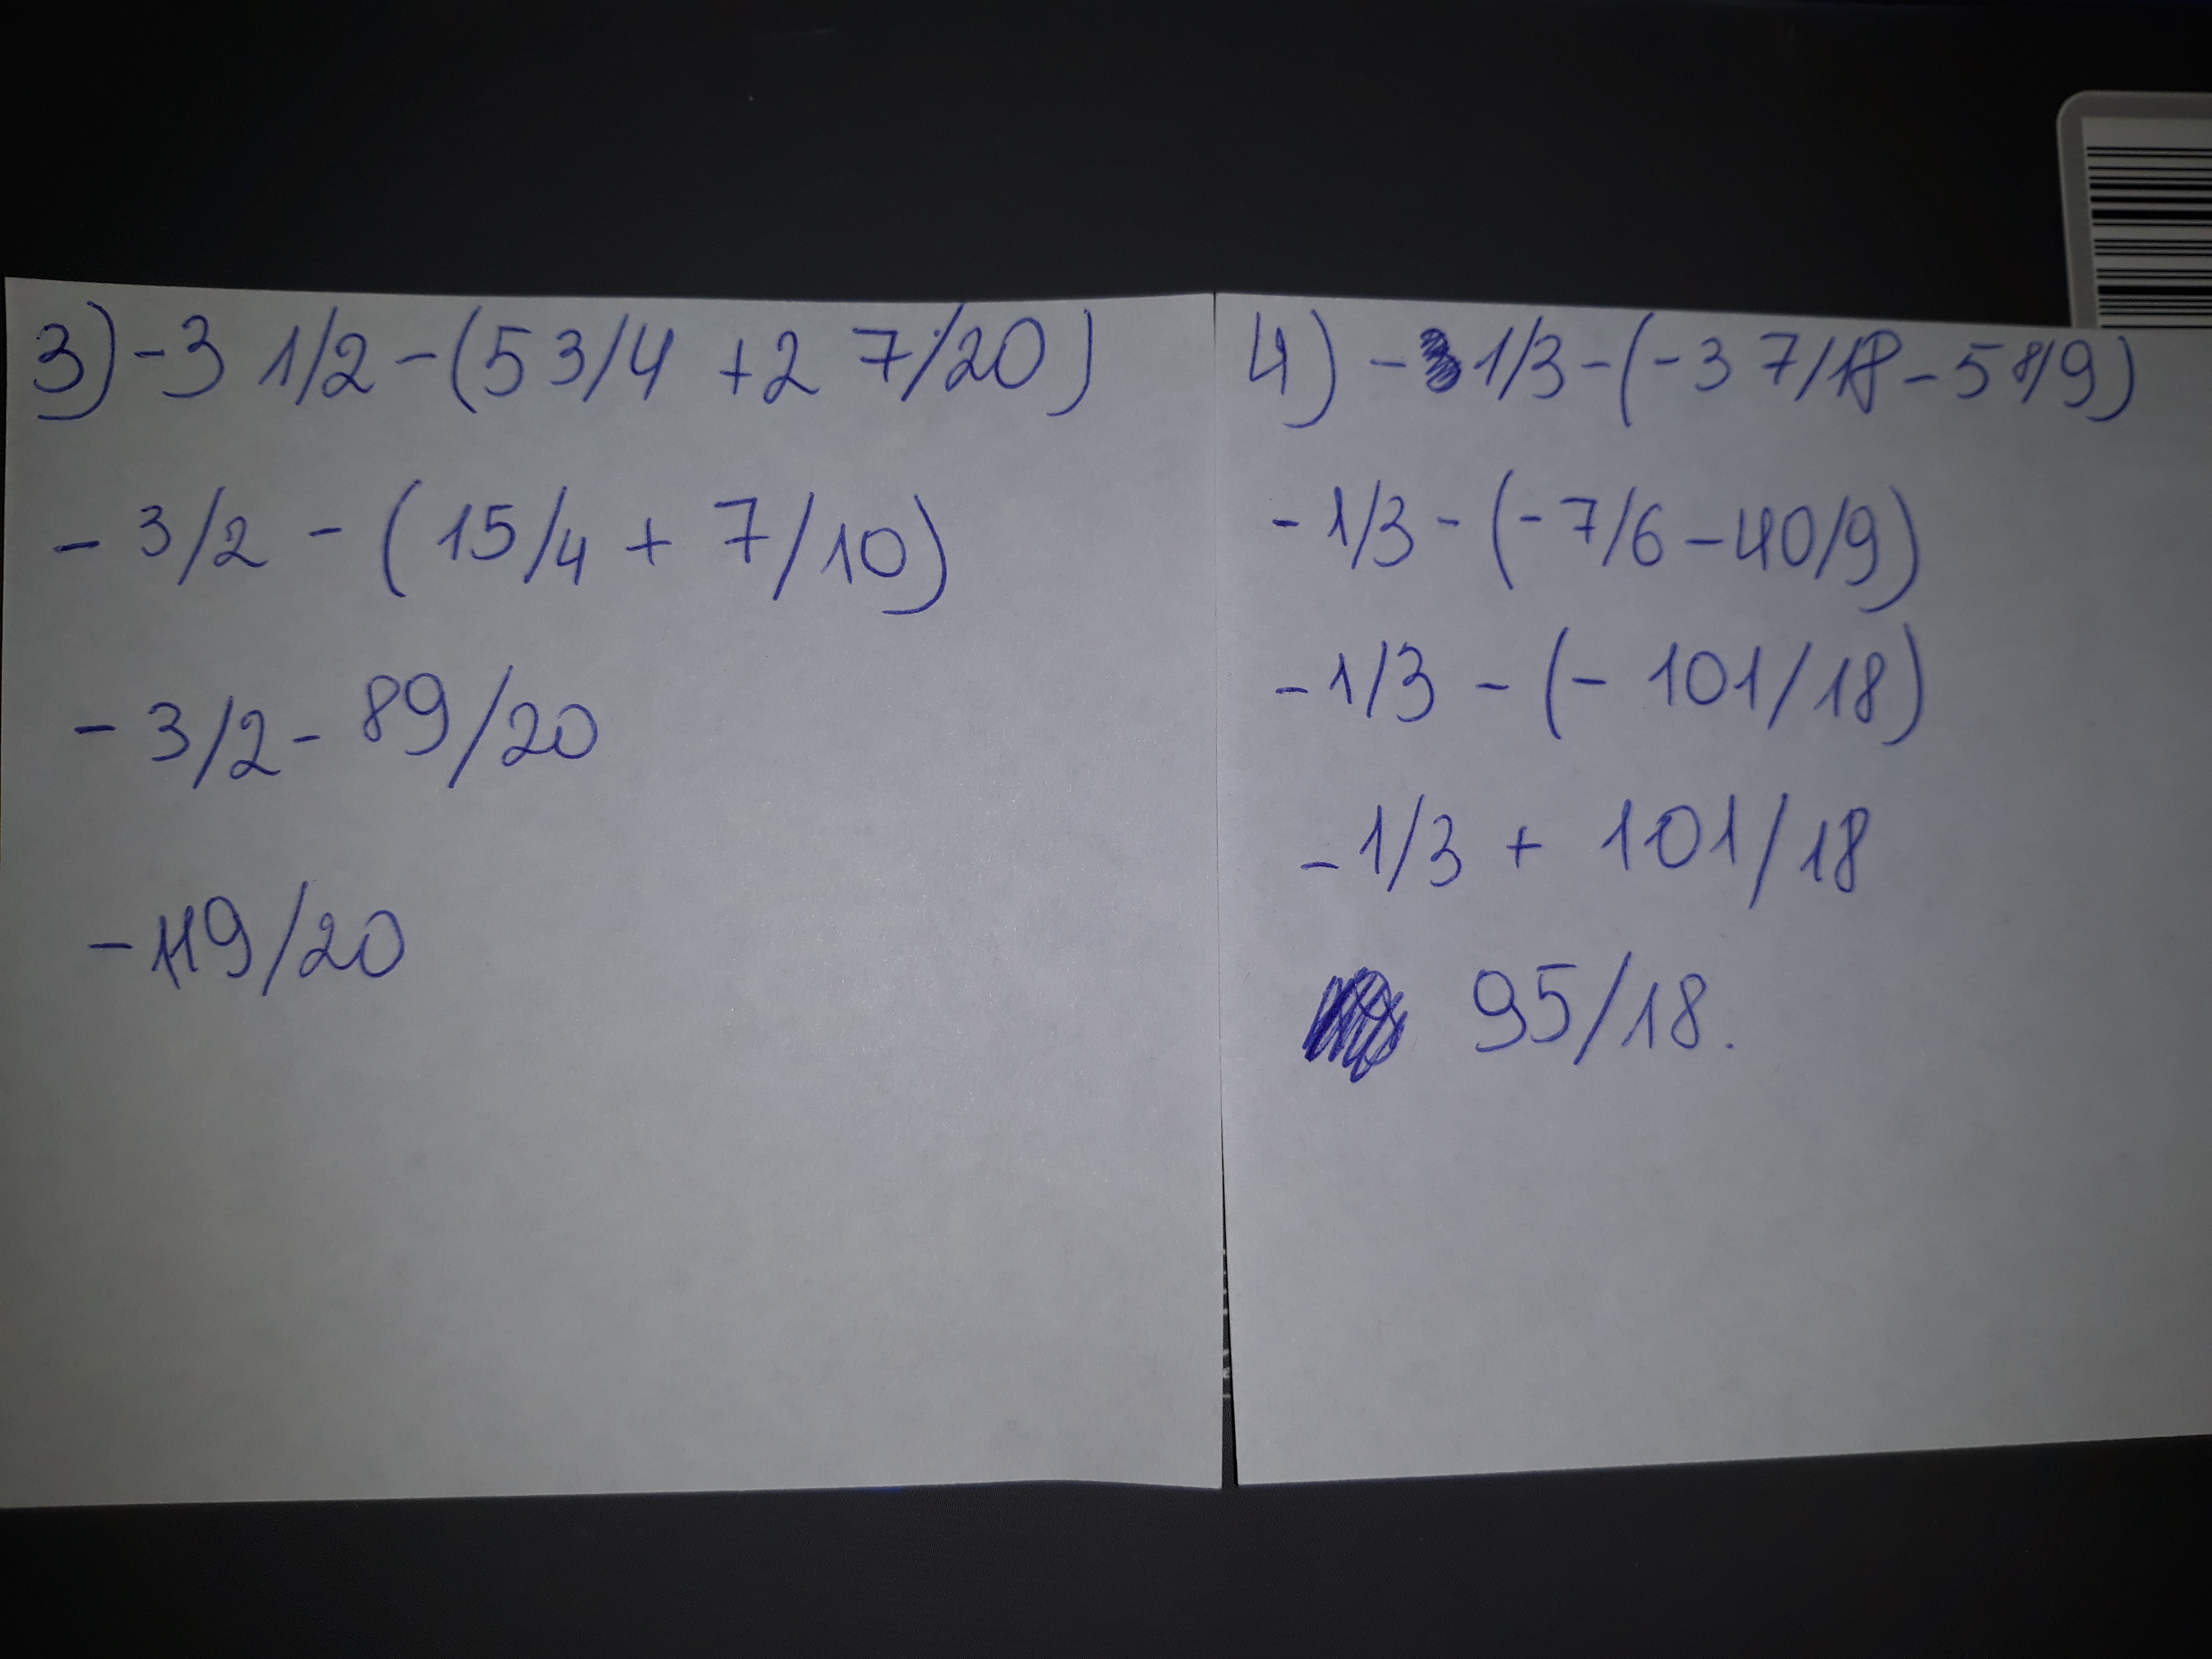 3) -3 1/2 - (5 3/4 + 2 7/20)
- 3/2 - (15/4 + 7/10)
- 3/2 - 89/20
- 119/20
4) - 1/3 - (-3 7/18 - 5 8/9)
- 1/3 - (- 7/6 - 40/9)
- 1/3 - (- 101/18)
- 1/3 + 101/18
95/18.